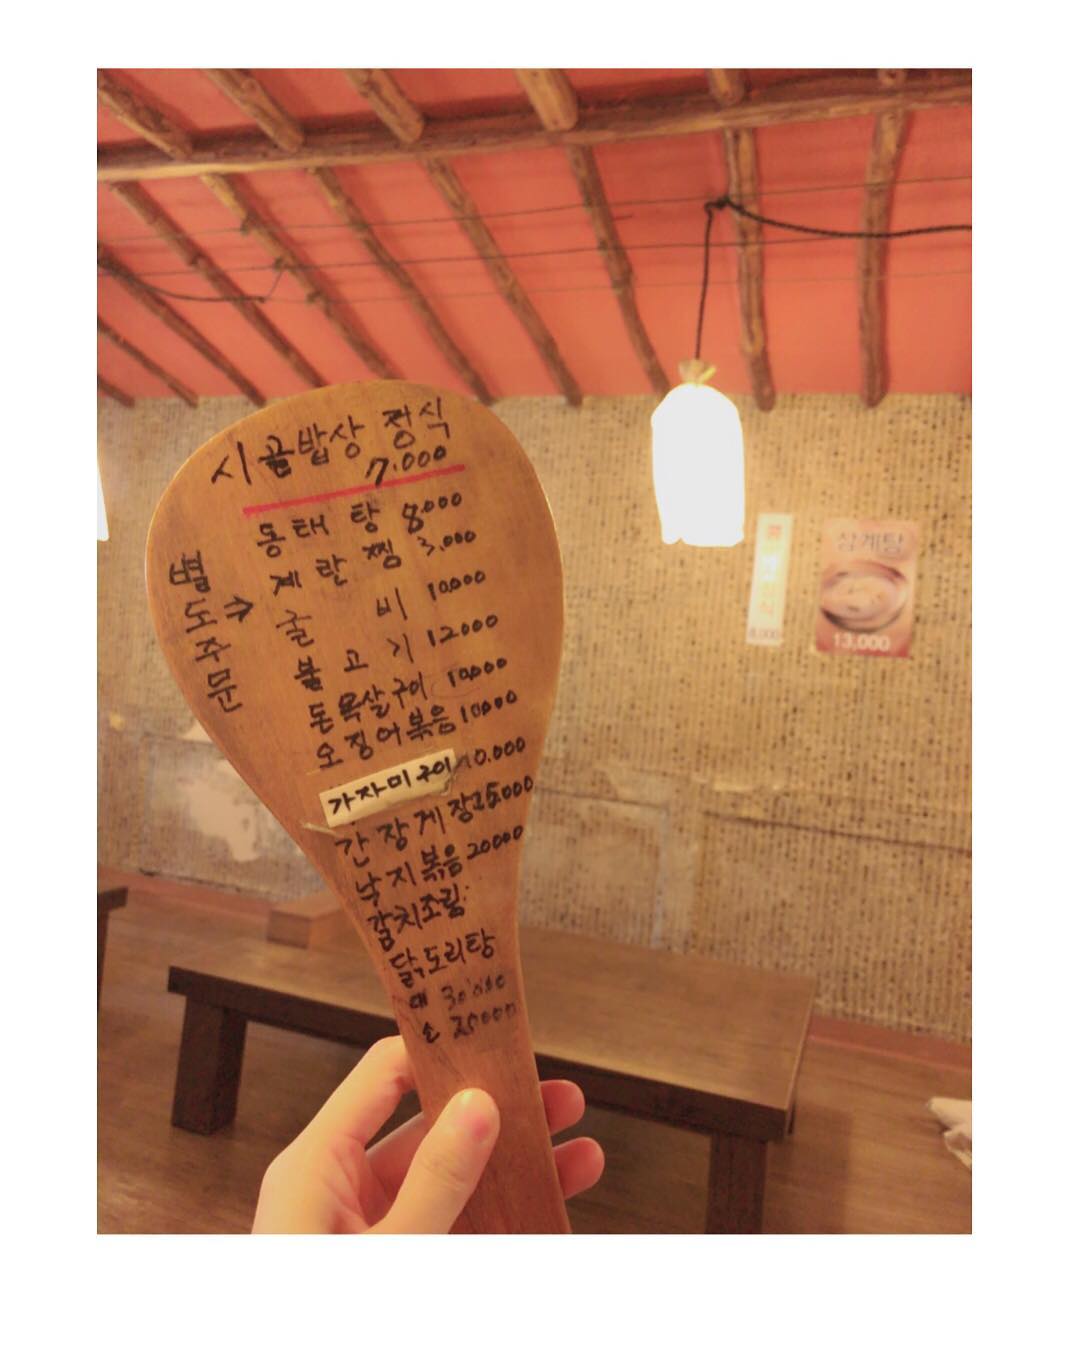 시골밥상 정식
7.000
별도주문 →
동태탕 8000
계란찜 3.000
굴비 10.000
불고기 12000
돈목살구이 10.000
오징어볶음 10000
가자미구이 10.000
간장게장 25000
낙지볶음 20000
갈치조림
닭도리탕
대 30.000
소
삼계탕
13,000
8,000